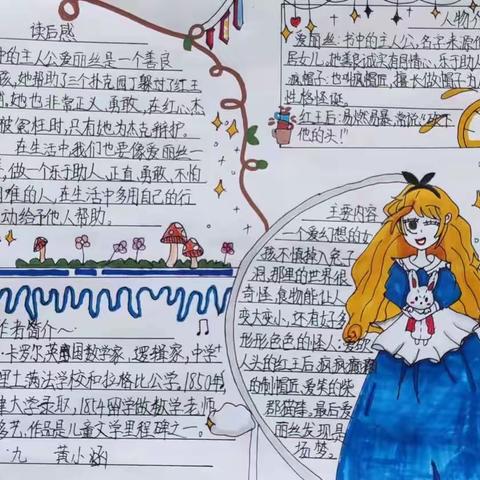 读后感
中的主人公爱丽丝是一个善良
孩,她帮助了三个扑克园丁躲过了红王
她也非常正义、勇敢,在红心杰
被冤枉时,只有她为杰克辩护。
在生活中我们也要像爱丽丝一
做一个乐于助人、正直、勇敢、不怕
困难的人,在生活中多用自己的行
动给予他人帮助。
者简介~
卡罗尔,英国数学家、逻辑家,中学
里士满法学校和拉格比公学,1850年
津大学录取,1854留学做数学老师
多艺,作品是儿童文学里程碑之一。
九 黄小涵
人物介
爱丽丝:书中的主人公,名字来源
居女儿,她善良诚实有同情心,乐于助人
帽子:也叫疯帽匠,擅长做帽子为人
性格怪诞。
红王后:易燃易暴,常说"砍下
他的头!"
主要内容
一个爱幻想的女
孩不慎掉入兔子
洞,那里的世界很
奇怪,食物能让人
变大变小,还有好多
形形色色的怪人:爱砍
人头的红王后,疯疯癫癫
的制帽匠,爱笑的柴
郡猫等,最后爱
丽丝发现是
场梦。